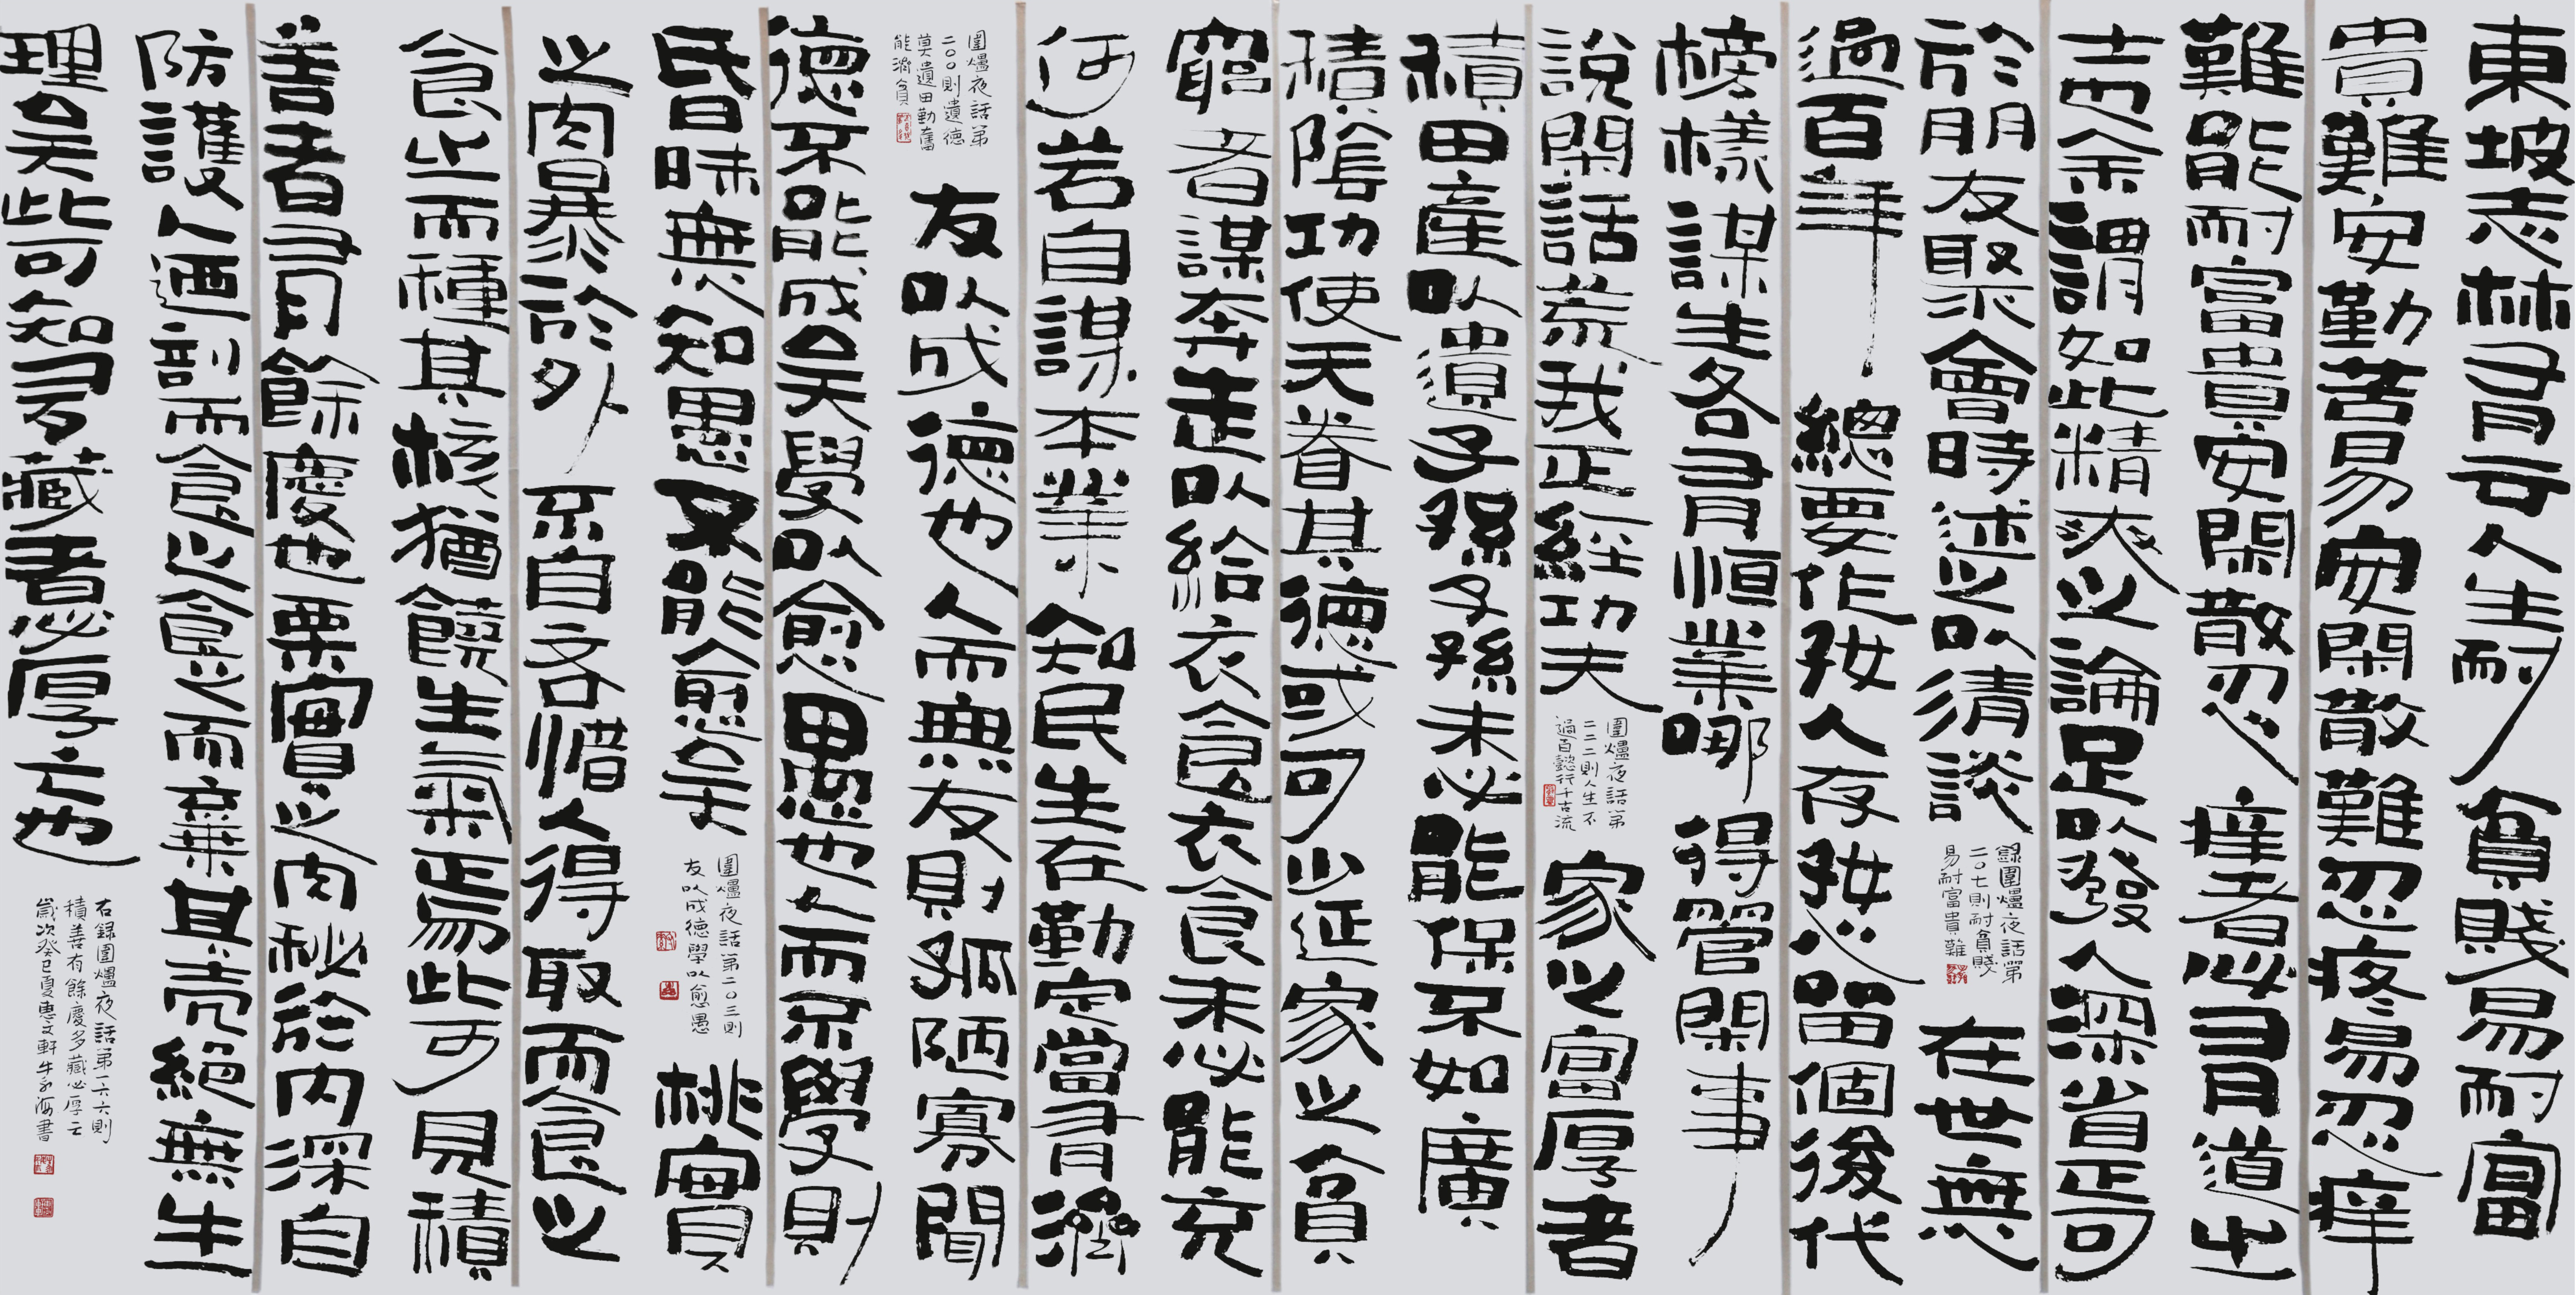 東坡志林有云人生耐貧賤易耐富
貴難安勤苦易安閑散難忍疼易忍痒
難能耐富貴安閑散忍痒者必有道之
士也余謂如此精爽之論足以發人深省正可
於朋友聚會時述之以清談
錄圍爐夜話第
二〇七則耐貧賤
易耐富貴難
在世無
過百年總要作好人存好心留個後代
榜樣謀生各有恒業哪得管閑事
說閑話荒我正經功夫
圍爐夜話第
二二二則人生不
過百懿行千古流
家之富厚者
積田產以遺子孫子孫未必能保不如廣
積陰功使天眷其德或可少延家之貧
窮者謀奔走以給衣食衣食未必能充
何若自謀本業知民生在勤定當有濟
圍爐夜話第
二〇〇則遺德
莫遺田勤奮
能濟貧
友以成德也人而無友則孤陋寡聞
德不能成矣學以愈愚也人而不學則
昏昧無知愚不能愈矣
圍爐夜話第二〇三則
友以成德學以愈愚
桃實
之肉暴於外不自吝惜人得取而食之
食之而種其核猶饒生氣焉此可見積
善者有餘慶也栗實之肉秘於內深自
防護人迺剖而食之食之而棄其壳絕無生
理矣此可知多藏者必厚亡也
右錄圍爐夜話第一六六則
積善有餘慶多藏必厚亡
歲次癸巳夏惠文軒牛海書